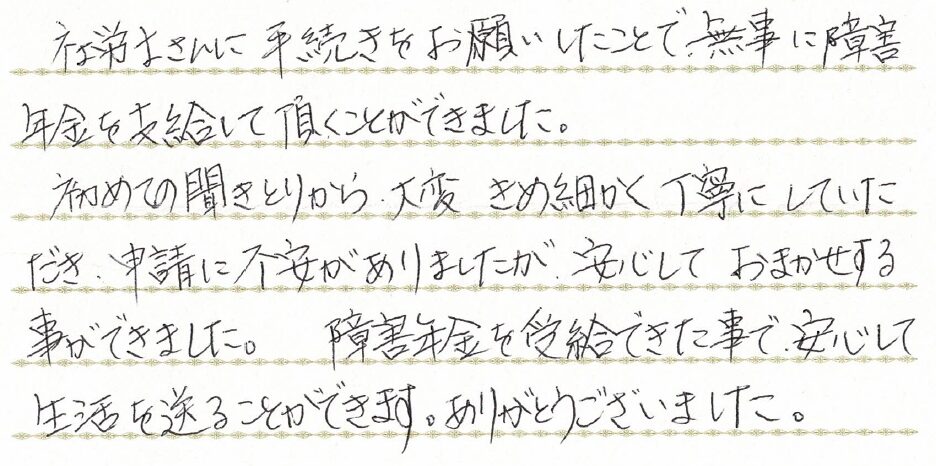 社労士さんに手続きをお願いしたことで、無事に障害
年金を支給して頂くことができました。
初めての聞きとりから、大変きめ細かく丁寧にしていた
だき、申請に不安がありましたが、安心しておまかせする
事ができました。 障害年金を受給できた事で、安心して
生活を送ることができます。ありがとうございました。